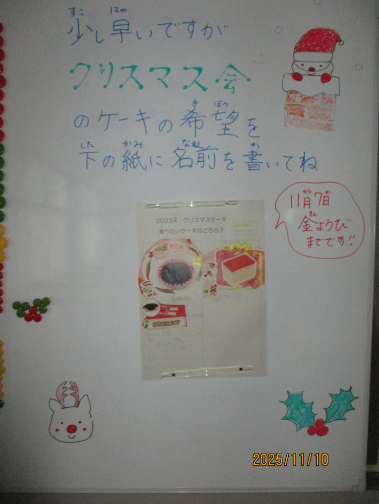 少し早いですが
クリスマス会
のケーキの希望を
下の紙に名前を書いてね
11月7日
金ようび
までです!!
2025年 クリスマスケーキ
食べたいケーキはどちら?
2025/11/10